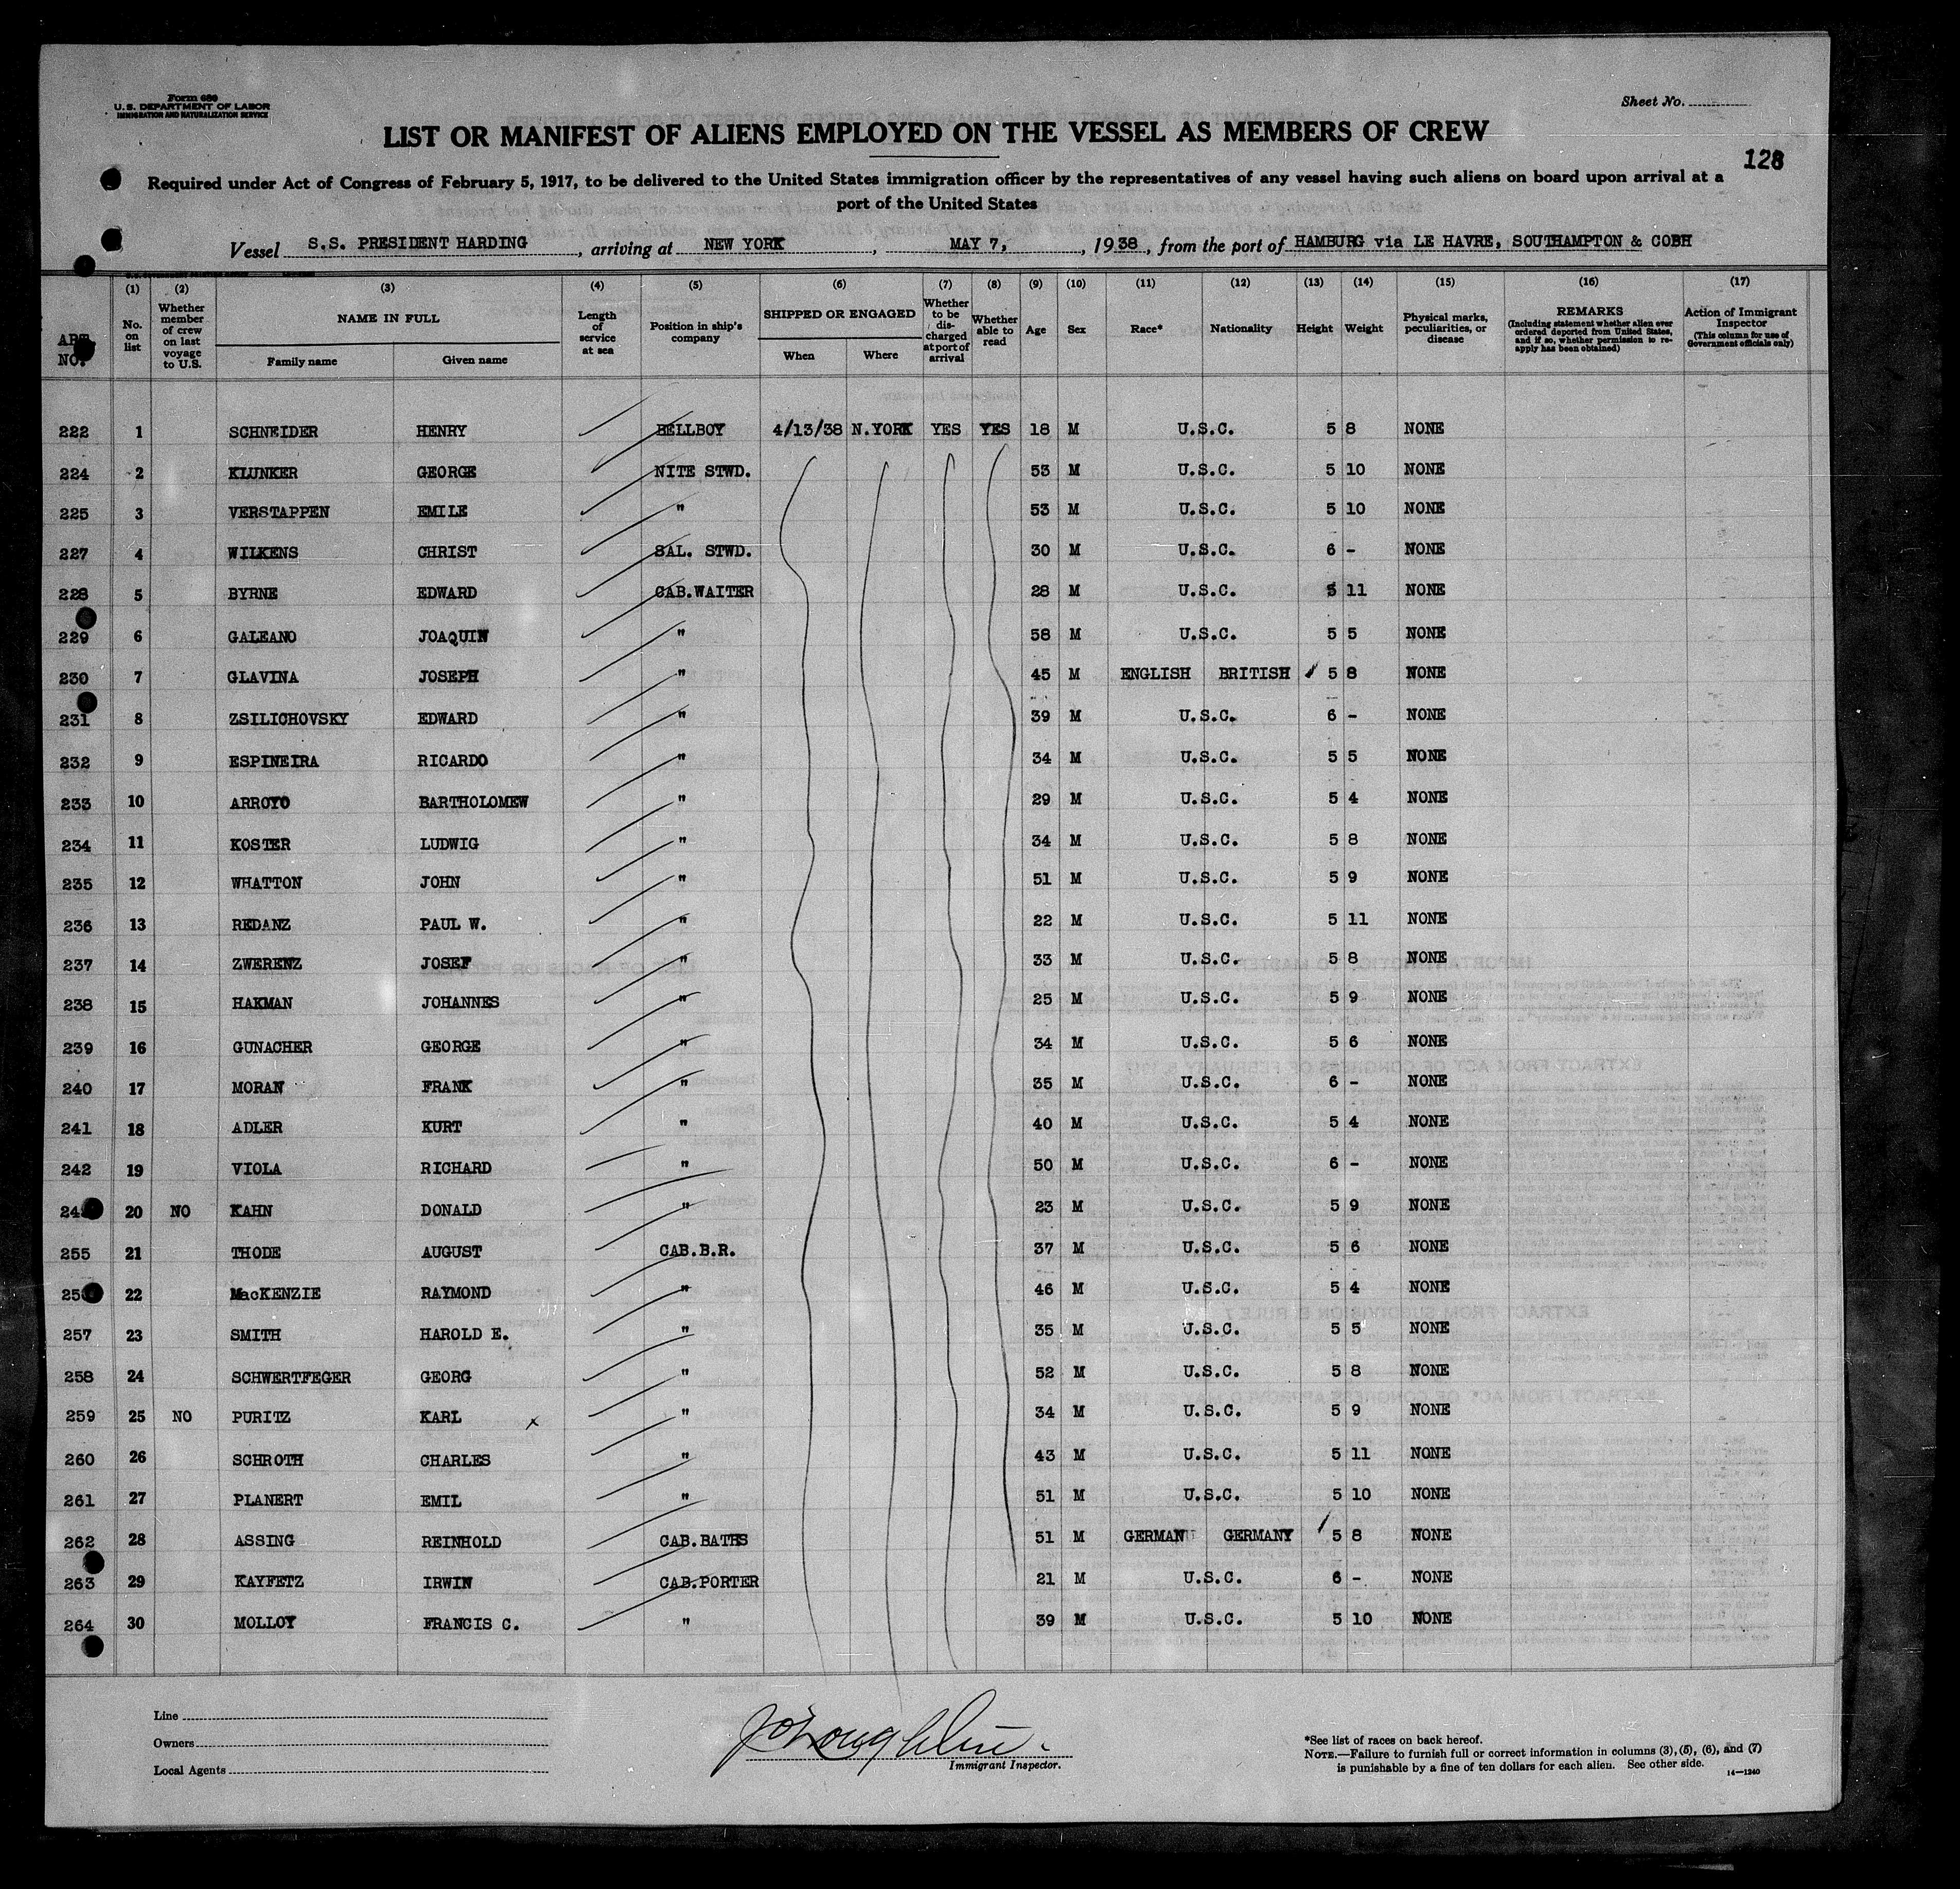 Form 680
U. S. DEPARTMENT OF LABOR
IMMIGRATION AND NATURALIZATION SERVICE
Sheet No.
LIST OR MANIFEST OF ALIENS EMPLOYED ON THE VESSEL AS MEMBERS OF CREW
128
Required under Act of Congress of February 5, 1917, to be delivered to the United States immigration officer by the representatives of any vessel having such aliens on board upon arrival at a
port of the United States
Vessel S.S. PRESIDENT HARDING, arriving at NEW YORK, MAY 7, 1938, from the port of HAMBURG via LE HAVRE, SOUTHAMPTON & COBH
ART NO. (1) No. on list (2) Whether member of crew on last voyage to U.S. (3) NAME IN FULL Family name Given name (4) Length of service at sea (5) Position in ship's company (6) SHIPPED OR ENGAGED When Where (7) Whether to be discharged at port of arrival (8) Whether able to read (9) Age (10) Sex (11) Race* (12) Nationality (13) Height (14) Weight (15) Physical marks, peculiarities, or disease (16) REMARKS (Including statement whether alien ever ordered deported from United States, and if so, whether permission to reapply has been obtained) (17) Action of Immigrant Inspector (This column for use of Government officials only)
222 1 SCHNEIDER HENRY BELLBOY 4/13/38 N.YORK YES YES 18 M U.S.C. 5 8 NONE
224 2 KLUNKER GEORGE NITE STWD. 53 M U.S.C. 5 10 NONE
225 3 VERSTAPPEN EMILE " 53 M U.S.C. 5 10 NONE
227 4 WILKENS CHRIST SAL. STWD. 30 M U.S.C. 6 - NONE
228 5 BYRNE EDWARD CAB.WAITER 28 M U.S.C. 5 11 NONE
229 6 GALEANO JOAQUIN " 58 M U.S.C. 5 5 NONE
230 7 GLAVINA JOSEPH " 45 M ENGLISH BRITISH 5 8 NONE
231 8 ZSILICHOVSKY EDWARD " 39 M U.S.C. 6 - NONE
232 9 ESPINEIRA RICARDO " 34 M U.S.C. 5 5 NONE
233 10 ARROYO BARTHOLOMEW " 29 M U.S.C. 5 4 NONE
234 11 KOSTER LUDWIG " 34 M U.S.C. 5 8 NONE
235 12 WHATTON JOHN " 51 M U.S.C. 5 9 NONE
236 13 REDANZ PAUL W. " 22 M U.S.C. 5 11 NONE
237 14 ZWERENZ JOSEF " 33 M U.S.C. 5 8 NONE
238 15 HAKMAN JOHANNES " 25 M U.S.C. 5 9 NONE
239 16 GUNACHER GEORGE " 34 M U.S.C. 5 6 NONE
240 17 MORAN FRANK " 35 M U.S.C. 6 - NONE
241 18 ADLER KURT " 40 M U.S.C. 5 4 NONE
242 19 VIOLA RICHARD " 50 M U.S.C. 6 - NONE
20 NO KAHN DONALD " 23 M U.S.C. 5 9 NONE
255 21 THODE AUGUST CAB.B.R. 37 M U.S.C. 5 6 NONE
22 MacKENZIE RAYMOND " 46 M U.S.C. 5 4 NONE
257 23 SMITH HAROLD E. " 35 M U.S.C. 5 5 NONE
258 24 SCHWERTFEGER GEORG " 52 M U.S.C. 5 8 NONE
259 25 NO PURITZ KARL x " 34 M U.S.C. 5 9 NONE
260 26 SCHROTH CHARLES " 43 M U.S.C. 5 11 NONE
261 27 PLANERT EMIL " 51 M U.S.C. 5 10 NONE
262 28 ASSING REINHOLD CAB.BATHS 51 M GERMAN GERMANY 5 8 NONE
263 29 KAYFETZ IRWIN CAB.PORTER 21 M U.S.C. 6 - NONE
264 30 MOLLOY FRANCIS C. " 39 M U.S.C. 5 10 NONE
Line
Owners
Local Agents
Immigrant Inspector.
*See list of races on back hereof.
NOTE.—Failure to furnish full or correct information in columns (3), (5), (6), and (7)
is punishable by a fine of ten dollars for each alien. See other side.
14—1240